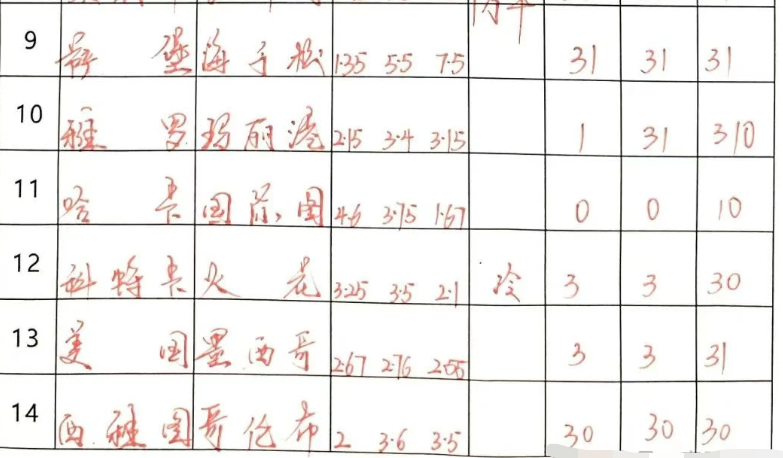 丙平
9 哥 堡 海 于 松 1·35 5·5 7·5 31 31 31
10 雅 罗 玛丽港 2·15 3·4 3·15 1 31 310
11 哈 卡 国际 图 4·6 3·75 1·67 0 0 10
12 科特卡 火 花 3·25 3·5 2·1 冷 3 3 30
13 美 国 墨西哥 2·67 2·76 2·55 3 3 31
14 西雅图 哥伦布 2 3·6 3·5 30 30 30